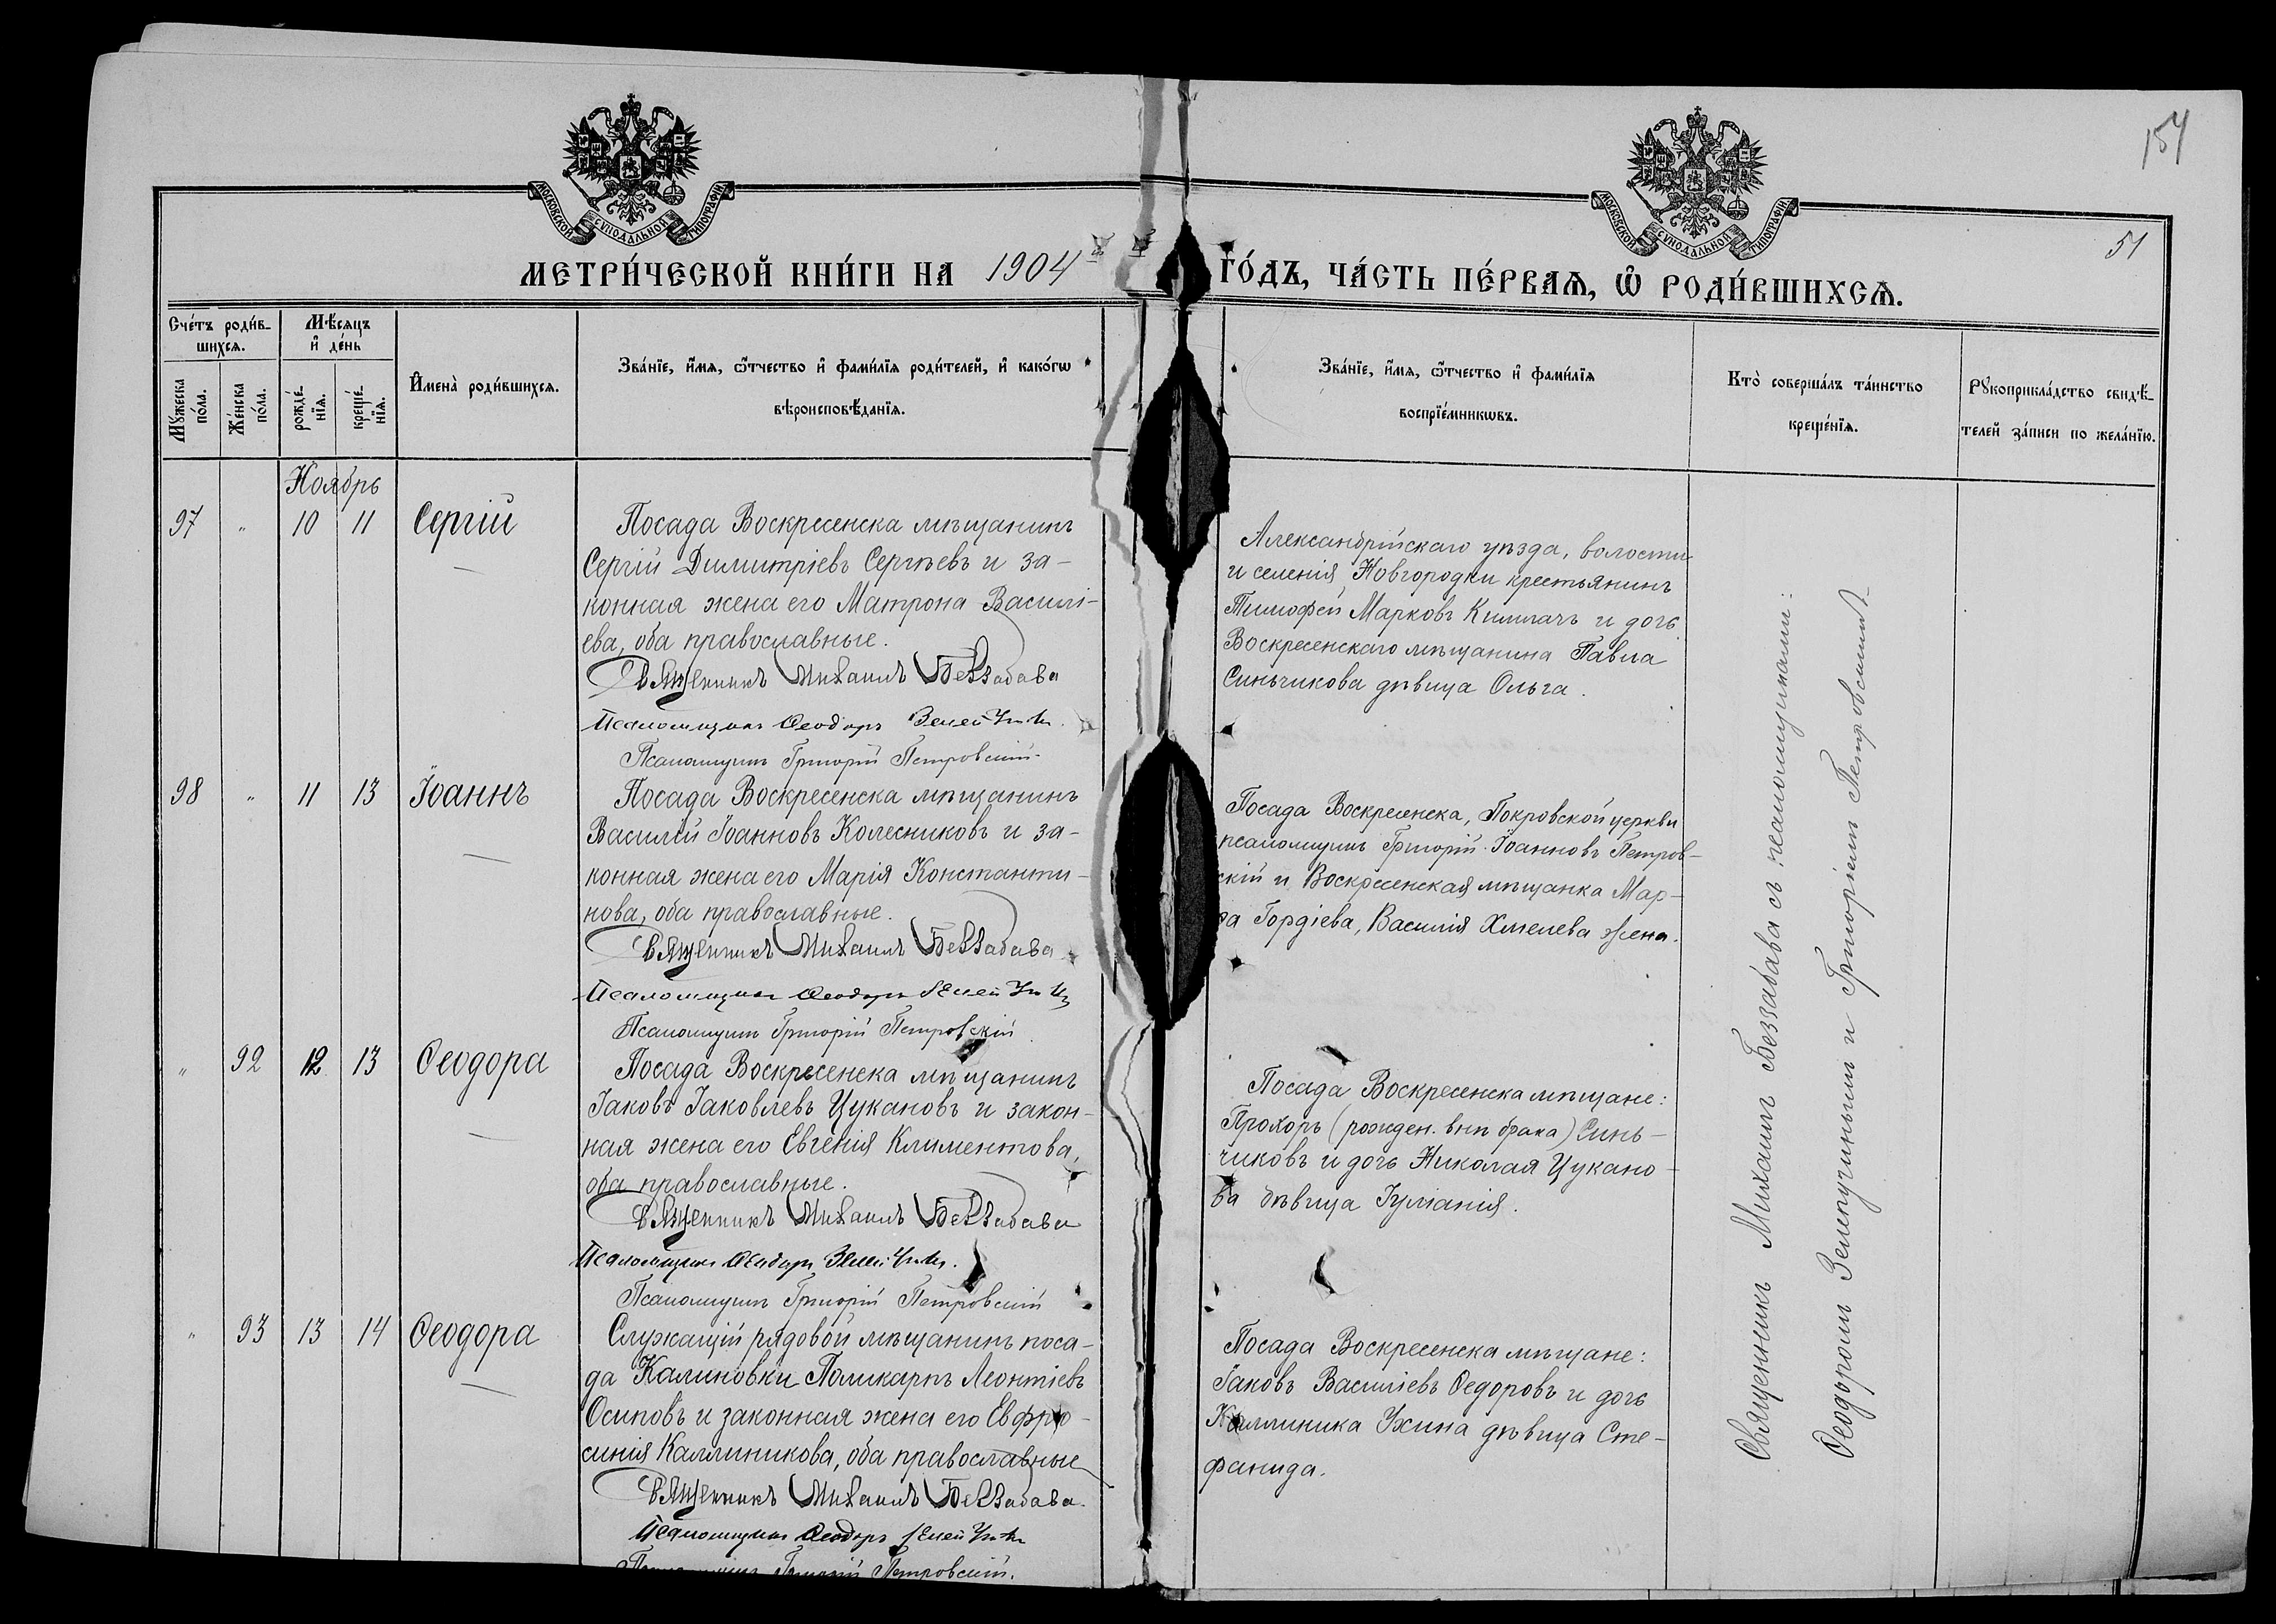 154
51
МОСКОВСКОЙ СУНОДАЛЬНОЙ ТИПОГРАФІИ
МОСКОВСКОЙ СУНОДАЛЬНОЙ ТИПОГРАФІИ
МЕТРИ́ЧЕСКОЙ КНИ́ГИ НА 1904 й
ГО́ДЪ, ЧА́СТЬ ПЕ́РВАѦ, Ѡ҆ РОДИ́ВШИХСѦ.
Сче́тъ роди́в-
шихсѧ.
Мꙋ́жеска
по́ла.
Же́нска
по́ла.
Мѣ́сѧцъ
и҆ де́нь
рожде́-
нїѧ.
креще́-
нїѧ.
И҆мена̀ роди́вшихсѧ.
Зва́нїе, и҆́мѧ, ѻ҆́тчество и҆ фами́лїѧ роди́телей, и҆ како́гѡ
вѣроисповѣ́данїѧ.
Зва́нїе, и҆́мѧ, ѻ҆́тчество и҆ фами́лїѧ
воспрїе́мникѡвъ.
Кто̀ соверша́лъ та́инство
креще́нїѧ.
Рꙋкоприкла́дство свидѣ́-
телей за́писи по жела́нїю.
Ноябрь
97 " 10 11 Сергій
Посада Воскресенска мѣщанинъ
Сергій Димитріевъ Сергѣевъ и за-
конная жена его Матрона Василі-
ева, оба православные.
Священникъ Михаилъ Беззабава
Псаломщикъ Ѳеодоръ
Псаломщикъ Григорій Петровскій
Александрійскаго уѣзда, волости
и селенія Новгородки крестьянинъ
Тимофей Марковъ и дочь
Воскресенскаго мѣщанина Павла
Синьчикова дѣвица Ольга.
98 " 11 13 Іоаннъ
Посада Воскресенска мѣщанинъ
Василій Іоанновъ Колесниковъ и за-
конная жена его Марія Константи-
нова, оба православные.
Священникъ Михаилъ Беззабава
Псаломщикъ Ѳеодоръ
Псаломщикъ Григорій Петровскій
Посада Воскресенска, Покровской церкви
псаломщикъ Григорій Іоанновъ Петров-
скій и Воскресенская мѣщанка Мар-
ѳа Гордіева, Василія Хмелева жена.
" 92 12 13 Ѳеодора
Посада Воскресенска мѣщанинъ
Іаковъ Іаковлевъ Цукановъ и закон-
ная жена его Евгенія Климентова,
оба православные.
Священникъ Михаилъ Беззабава
Псаломщикъ Ѳеодоръ
Псаломщикъ Григорій Петровскій
Посада Воскресенска мѣщане:
Прохоръ (рожден. внѣ брака) Синь-
чиковъ и дочь Николая Цукано-
ва дѣвица Іуліанія.
" 93 13 14 Ѳеодора
Служащій рядовой мѣщанинъ поса-
да Калиновки Поликарпъ Леонтіевъ
Осиповъ и законная жена его Евфро-
синія Каллиникова, оба православные
Священникъ Михаилъ Беззабава.
Псаломщикъ Ѳеодоръ
Григорій Петровскій.
Посада Воскресенска мѣщане:
Іаковъ Василіевъ Ѳедоровъ и дочь
Каллиника Ухина дѣвица Сте-
фанида.
Священникъ Михаилъ Беззабава съ псаломщиками:
Ѳеодоромъ и Григоріемъ Петровскимъ